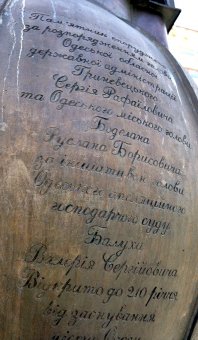 Пам'ятник споруджено
за розпорядженням голови
Одеської обласної
державної адміністрації
Гриневецького
Сергія Рафаїловича
та Одеського міського голови
Боделана
Руслана Борисовича
за ініціативи голови
Одеського апеляційного
господарчого суду
Балуха
Валерія Сергійовича
Відкрито до 210 річчя
від заснування
міста Одеси